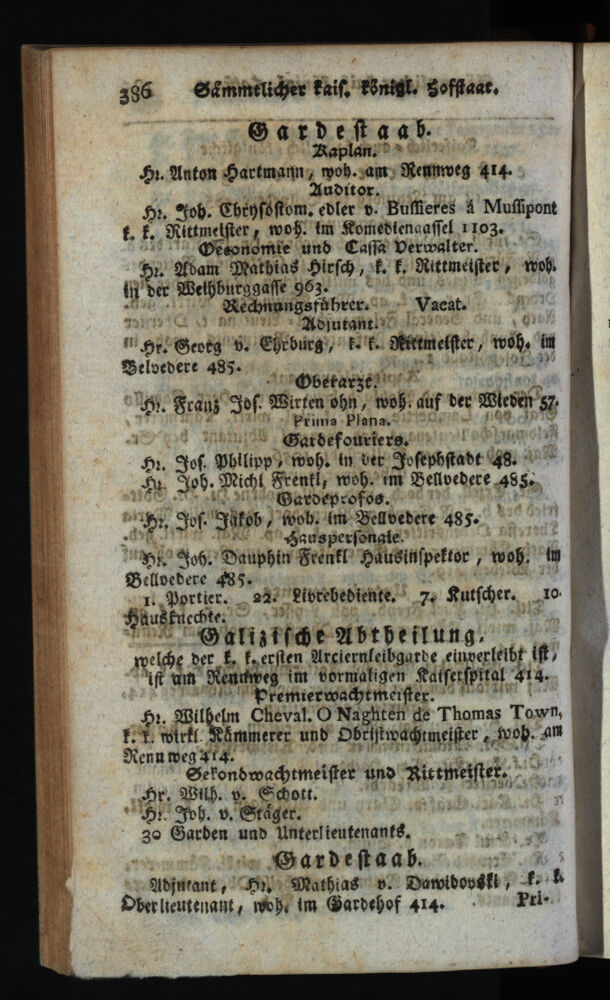 386 Sämmtlicher kais. königl. Hofstaat.
Gardestaab.
Kaplan.
Hr. Anton Hartmann, woh. am Rennweg 414.
Auditor.
Hr. Joh. Chrysostom. edler v. Bussieres á Mussipont
k. k. Rittmeister, woh. im Komediengassel 1103.
Oeconomie und Cassa Verwalter.
Hr. Adam Mathias Hirsch, k. k. Rittmeister, woh.
in der Weihburggasse 963.
Rechnungsführer. Vacat.
Adjutant.
Hr. Georg v. Ehrburg, k. k. Rittmeister, woh. im
Belvedere 485.
Oberarzt.
Hr. Franz Jos. Wirten ohn, woh. auf der Wieden 57.
Prima Plana.
Gardefouriers.
Hr. Jos. Philipp, woh. in der Josephstadt 48.
Hr. Joh. Michl Frenkl, woh. im Bellvedere 485.
Gardeprofos.
Hr. Jos. Jakob, woh. im Bellvedere 485.
Hauspersonale.
Hr. Joh. Dauphin Frenkl Hausinspektor, woh. im
Bellvedere 485.
1. Portier. 22. Livrebediente. 7. Kutscher. 10.
Hausknechte.
Galizische Abtheilung,
welche der k. k. ersten Arciernleibgarde einverleibt ist,
ist am Rennweg im vormaligen Kaiserspital 414.
Premierwachtmeister.
Hr. Wilhelm Cheval. O Naghten de Thomas Town,
k. k. wirkl. Kämmerer und Obristwachtmeister, woh. am
Rennweg 414.
Sekondwachtmeister und Rittmeister.
Hr. Wilh. v. Schott.
Hr. Joh. v. Stäger.
30 Garden und Unterlieutenants.
Gardestaab.
Adjutant, Hr. Mathias v. Dawidovski, k. k.
Oberlieutenant, woh. im Gardehof 414.
Pri-